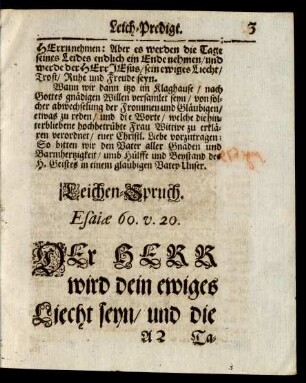 Leich-Predigt. 3
HErrn nehmen: Aber es werden die Tage
seines Leides endlich ein Ende nehmen/ und
werde der HErr JEsus/ sein ewiges Liecht/
Trost/ Ruhe und Freude seyn.
Wann wir dann itzo im Klaghause/ nach
Gottes gnädigen Willen versamlet seyn/ von sol-
cher abwechselung der Frommen und Gläubigen/
etwas zu reden/ und die Worte/ welche die hin-
terbliebene hochbetrübte Frau Wittwe zu erklä-
ren verordnet/ euer Christl. Liebe vorzutragen:
So bitten wir den Vater aller Gnaden und
Barmhertzigkeit/ umb Hülffe und Beystand des
H. Geistes in einem gläubigen Vater Unser.
Leichen-Spruch.
Esaiæ 60. v. 20.
DEr HERR
wird dein ewiges
Liecht seyn/ und die
A 2 Ta-